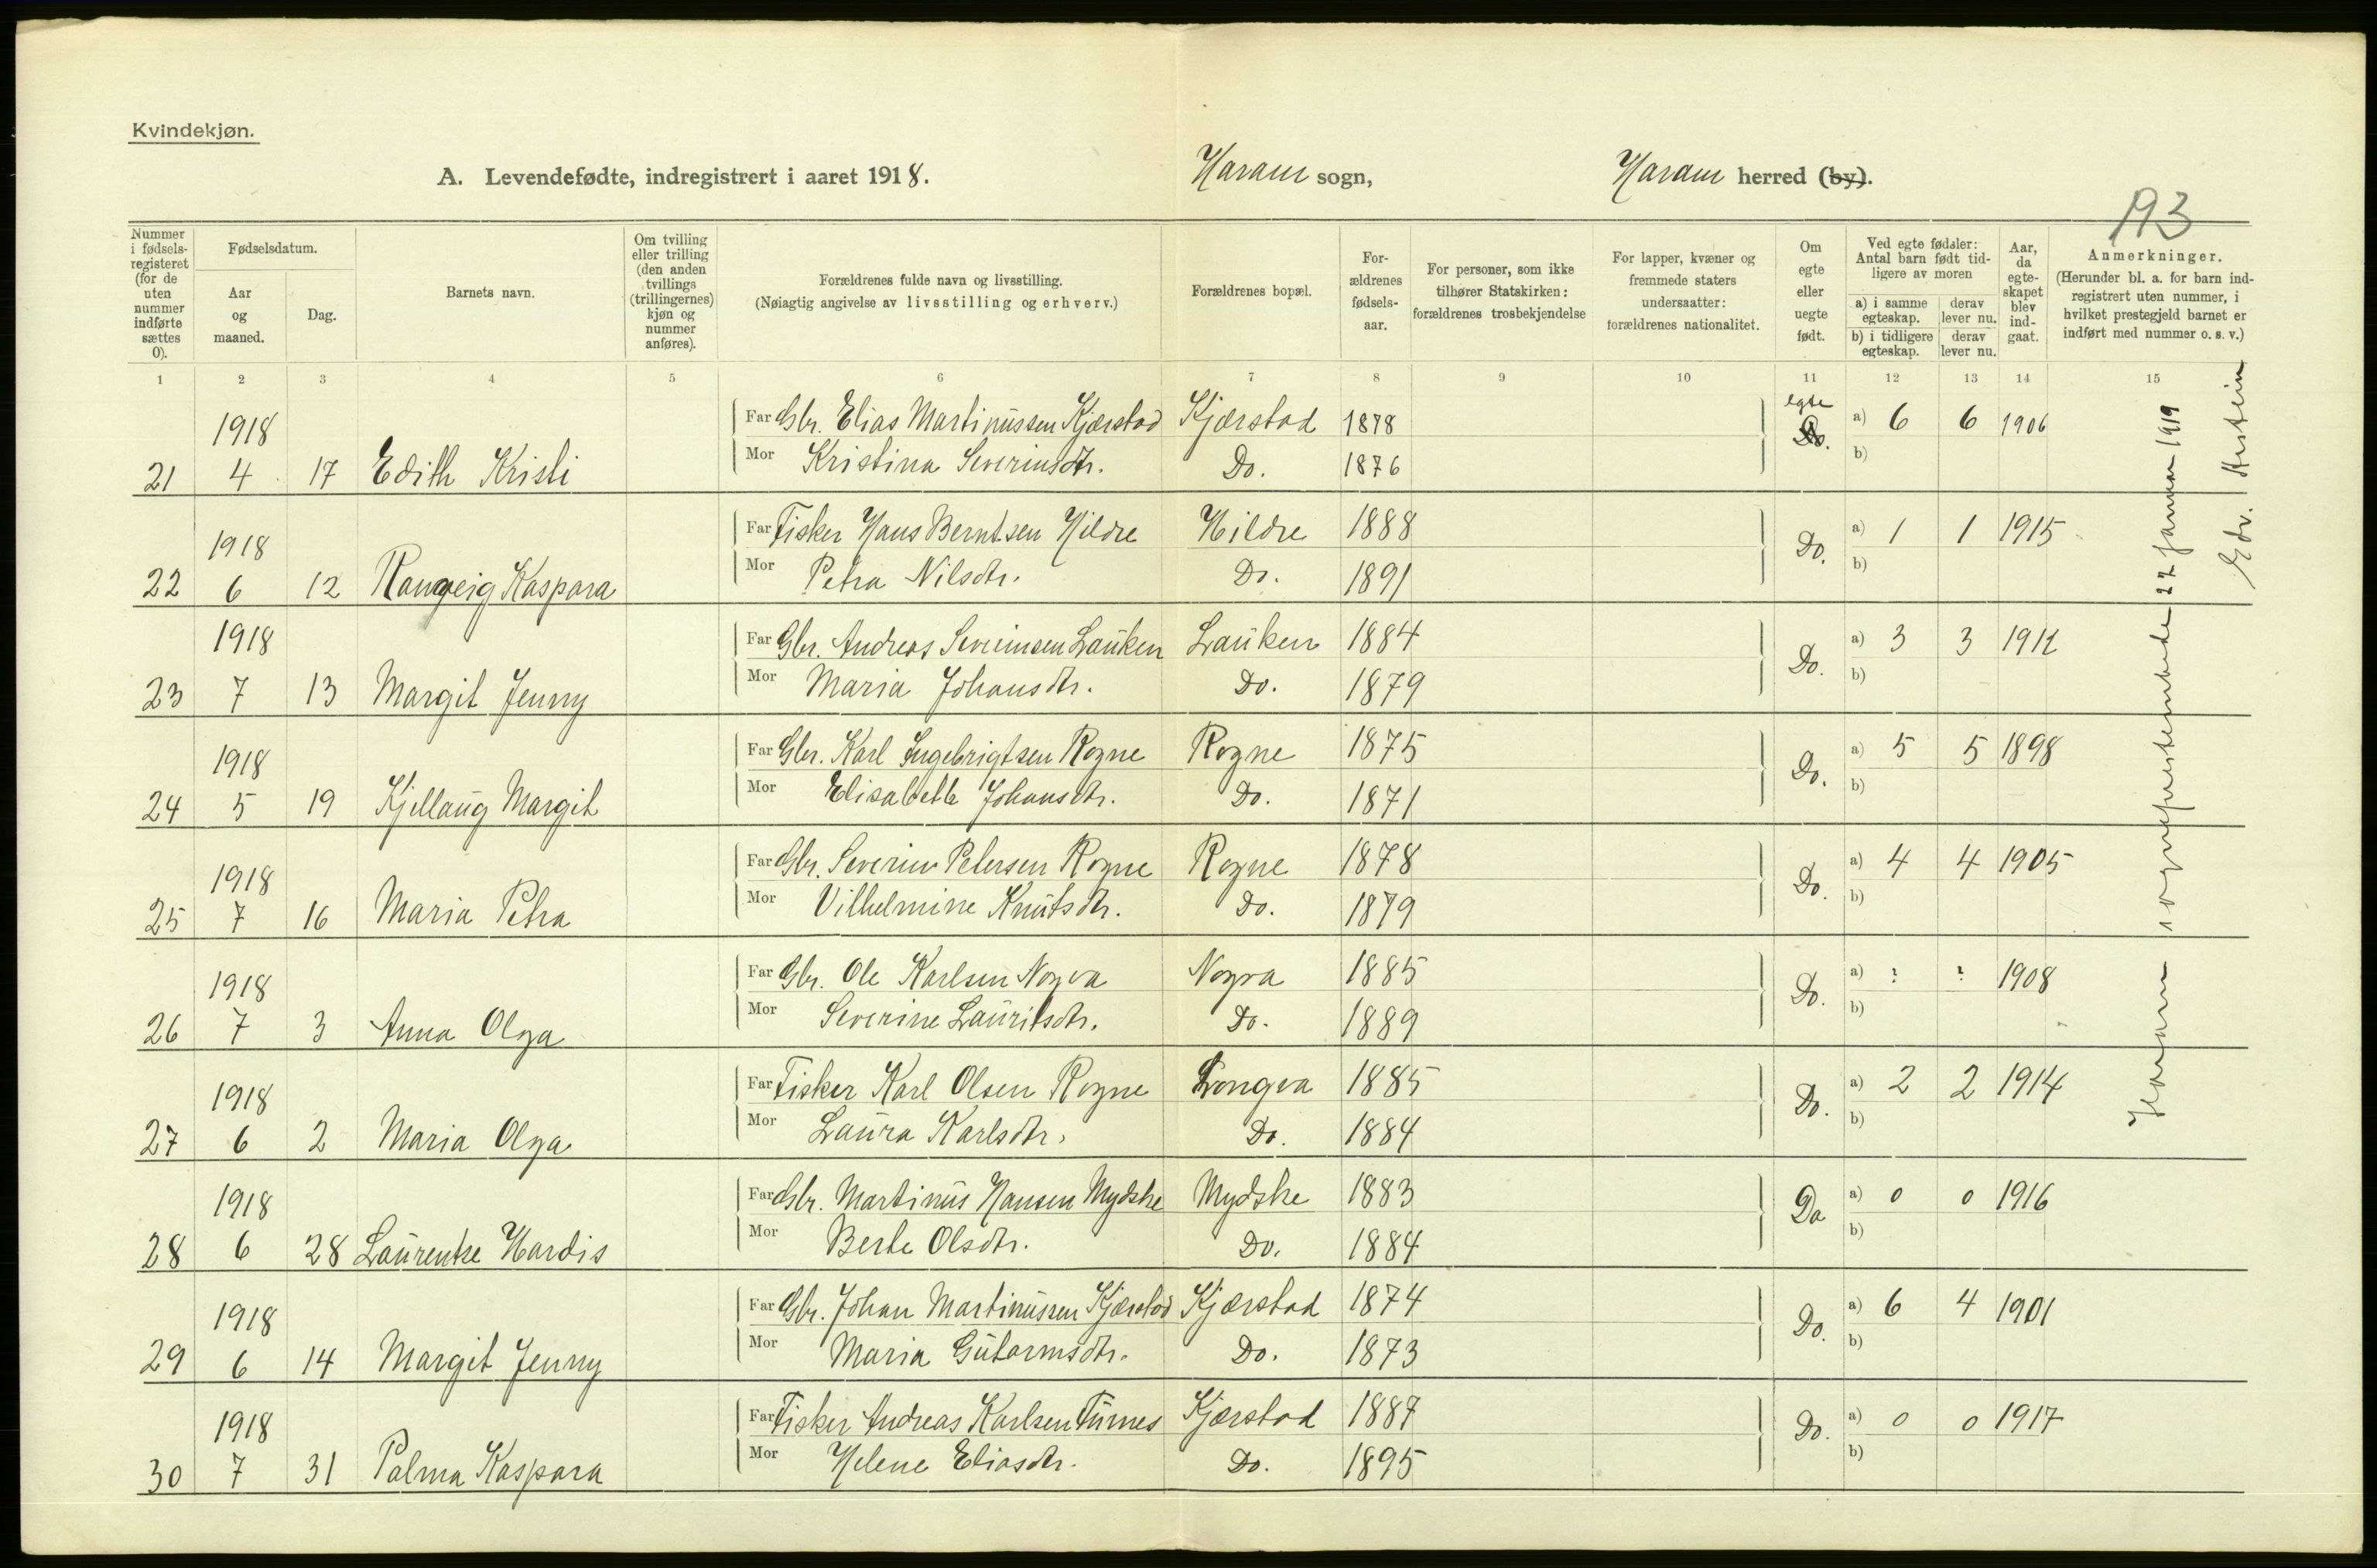 Kvindekjøn.
A. Levendefødte, indregistrert i aaret 1918. Haram sogn, Haram herred (by).
193
Nummer i fødsels-registeret (for de uten nummer indførte sættes 0).
Fødselsdatum.
Aar og maaned.
Dag.
Barnets navn.
Om tvilling eller trilling (den anden tvillings (trillingernes) kjøn og nummer anføres).
Forældrenes fulde navn og livsstilling.
(Nøiagtig angivelse av livsstilling og erhverv.)
Forældrenes bopæl.
For-ældrenes fødsels-aar.
For personer, som ikke tilhører Statskirken: forældrenes trosbekjendelse
For lapper, kvæner og fremmede staters undersaatter: forældrenes nationalitet.
Om egte eller uegte født.
Ved egte fødsler: Antal barn født tid-ligere av moren
a) i samme egteskap.
derav lever nu.
b) i tidligere egteskap.
derav lever nu.
Aar, da egte-skapet blev ind-gaat.
Anmerkninger.
(Herunder bl. a. for barn ind-registrert uten nummer, i hvilket prestegjeld barnet er indført med nummer o. s. v.)
1 2 3 4 5 6 7 8 9 10 11 12 13 14 15
1918 Far Gbr. Elias Martinussen Kjærstad Kjærstad 1878 egte Do. a) 6 6 1906
21 4 17 Edith Kristi Mor Kristina Severinsdtr. Do. 1876 b)
1918 Far Fisker Hans Berntsen Hildre Hildre 1888 Do. a) 1 1 1915
22 6 12 Rangveig Kaspara Mor Petra Nilsdtr. Do. 1891 b)
1918 Far Gbr. Andreas Severinsen Lauken Lauken 1884 Do. a) 3 3 1912
23 7 13 Margit Jenny Mor Maria Johansdtr. Do. 1879 b)
1918 Far Gbr. Karl Ingebrigtsen Rogne Rogne 1875 Do. a) 5 5 1898
24 5 19 Kjellaug Margit Mor Elisabeth Johansdtr. Do. 1871 b)
1918 Far Gbr. Severin Petersen Rogne Rogne 1878 Do. a) 4 4 1905
25 7 16 Maria Petra Mor Vilhelmine Knutsdtr. Do. 1879 b)
1918 Far Gbr. Ole Karlsen Nogva Nogva 1885 Do. a) ? ? 1908
26 7 3 Anna Olga Mor Severine Lauritsdtr. Do. 1889 b)
1918 Far Fisker Karl Olsen Rogne Longva 1885 Do. a) 2 2 1914
27 6 2 Maria Olga Mor Laura Karlsdtr. Do. 1884 b)
1918 Far Gbr. Martinus Hansen Mydske Mydske 1883 Do a) 0 0 1916
28 6 28 Laurentse Hardis Mor Berte Olsdtr. Do. 1884 b)
1918 Far Gbr. Johan Martinussen Kjærstad Kjærstad 1874 Do. a) 6 4 1901
29 6 14 Margit Jenny Mor Maria Gutormsdtr. Do. 1873 b)
1918 Far Fisker Andreas Karlsen Furnes Kjærstad 1887 Do. a) 0 0 1917
30 7 31 Palma Kaspara Mor Helene Eliasdtr. Do. 1895 b)
Haram sogneprestembede 22 januar 1919
Edv.